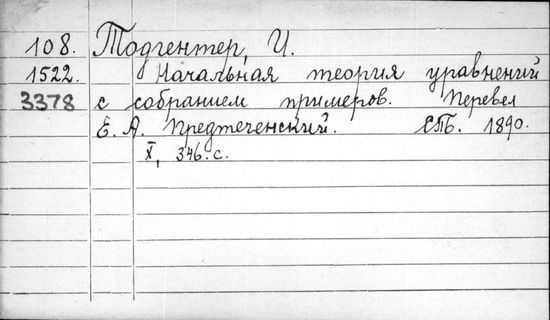 108. Тодгентер, И.
1522. Начальная теория уравнений
3378 с собранием примеров. Перевел
Е. А. Предтеченский. СПб. 1890.
X, 346 с.